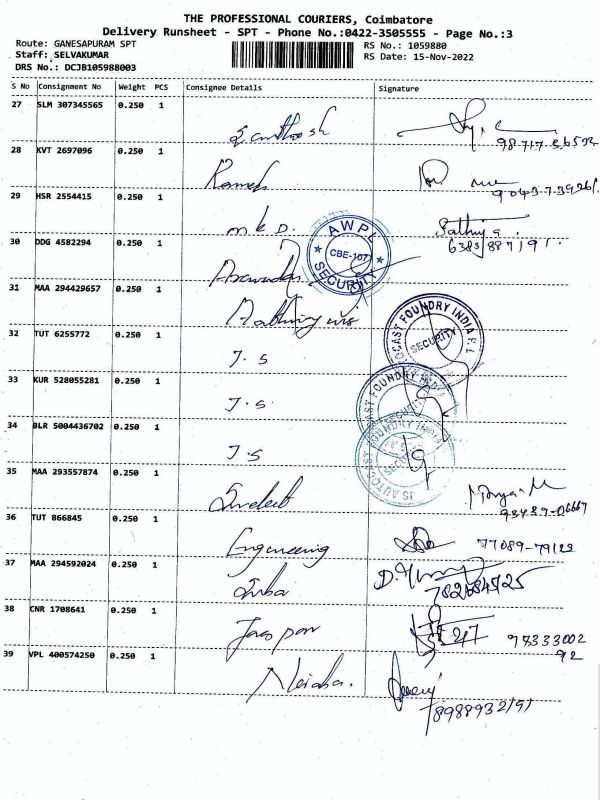 THE PROFESSIONAL COURIERS, Coimbatore
Delivery Runsheet - SPT - Phone No.:0422-3505555 - Page No.:3
Route: GANESAPURAM SPT
RS No.: 1059880
Staff: SELVAKUMAR
RS Date: 15-Nov-2022
DRS No.: DCJB105988003
S No Consignment No Weight PCS Consignee Details Signature
27 SLM 307345565 0.250 1 Santhosh
28 KVT 2697096 0.250 1 Ramesh
29 HSR 2554415 0.250 1 Sathiya
30 DDG 4582294 0.250 1
AWPL CBE-107 SECURITY
31 MAA 294429657 0.250 1
32 TUT 6255772 0.250 1 J. S
CAST FOUNDRY INDIA P.L SECURITY
33 KUR 528055281 0.250 1 J. S.
CAST FOUNDRY INDIA SECURITY
34 BLR 5004436702 0.250 1 J. S
JS AUTOCAST FOUNDRY INDIA
35 MAA 293557874 0.250 1
36 TUT 866845 0.250 1 Engineering 77089-79123
37 MAA 294592024 0.250 1 Suba
38 CNR 1708641 0.250 1 97333002
92
39 VPL 400574250 0.250 1